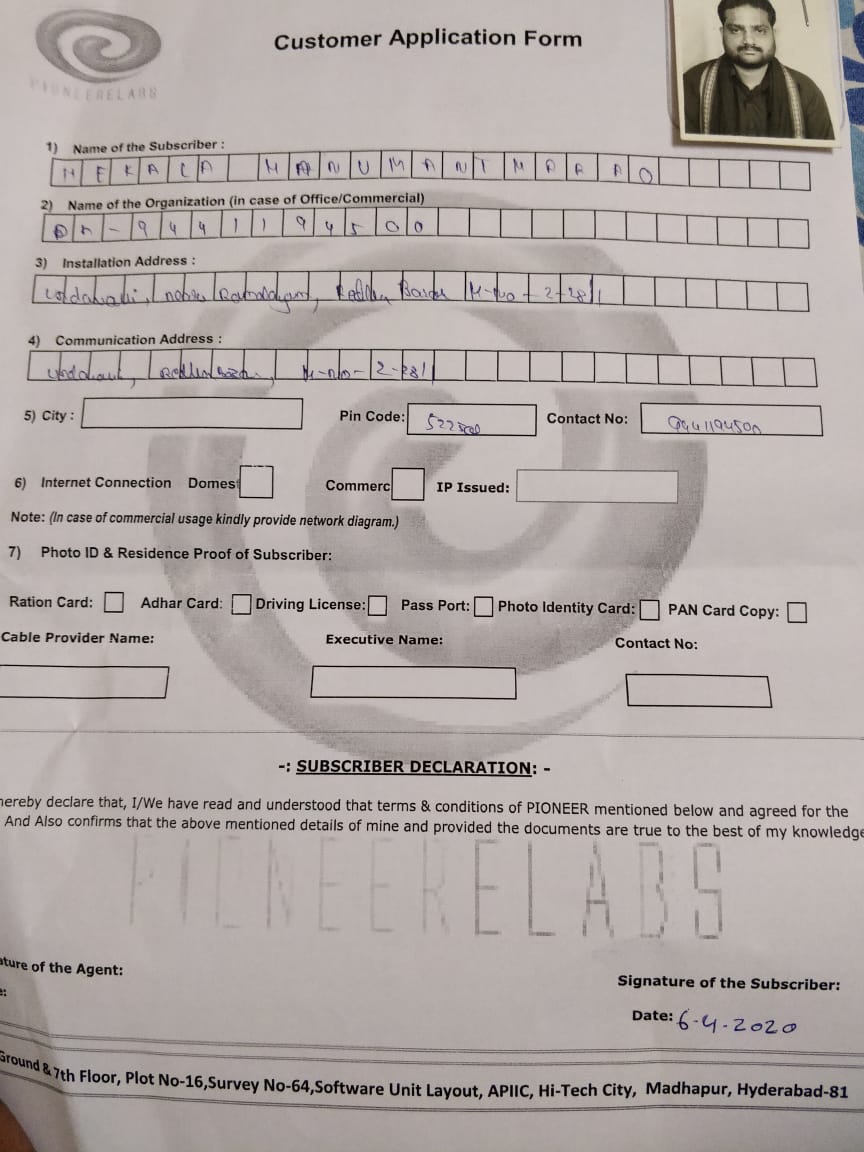 PIONEERELABS
Customer Application Form
1) Name of the Subscriber :
MEKALA HANUMANTMARAO
2) Name of the Organization (in case of Office/Commercial)
Ph - 9441194500
3) Installation Address :
H-No - 2-281
4) Communication Address :
H-no- 2-281
5) City : Pin Code: Contact No: 9441194500
6) Internet Connection Domes Commerc IP Issued:
Note: (In case of commercial usage kindly provide network diagram.)
7) Photo ID & Residence Proof of Subscriber:
Ration Card: Adhar Card: Driving License: Pass Port: Photo Identity Card: PAN Card Copy:
Cable Provider Name: Executive Name: Contact No:
-: SUBSCRIBER DECLARATION: -
hereby declare that, I/We have read and understood that terms & conditions of PIONEER mentioned below and agreed for the
And Also confirms that the above mentioned details of mine and provided the documents are true to the best of my knowledge
PIONEERELABS
ature of the Agent:
Signature of the Subscriber:
e:
Date: 6-4-2020
Ground & 7th Floor, Plot No-16,Survey No-64,Software Unit Layout, APIIC, Hi-Tech City, Madhapur, Hyderabad-81